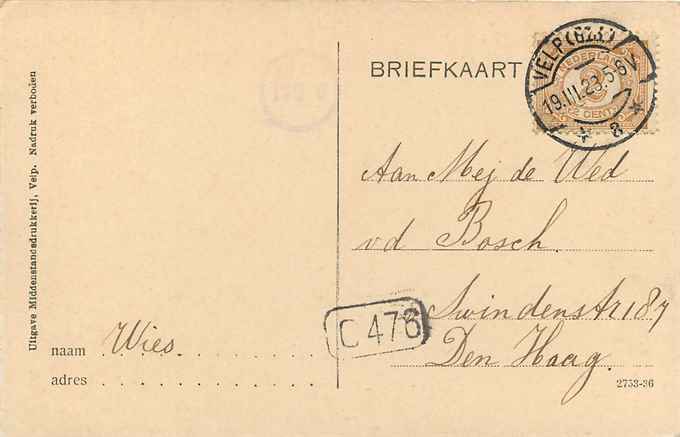 Uitgave Middenstandsdrukkerij, Velp. Nadruk verboden
BRIEFKAART
VELP (GZB.)
19.III.23.5-6V
8
NEDERLAND
2 CENT
Aan Mej de Wed
vd Bosch.
Swindenstr 187
Den Haag.
C 476
naam Wies.
adres
2753-36